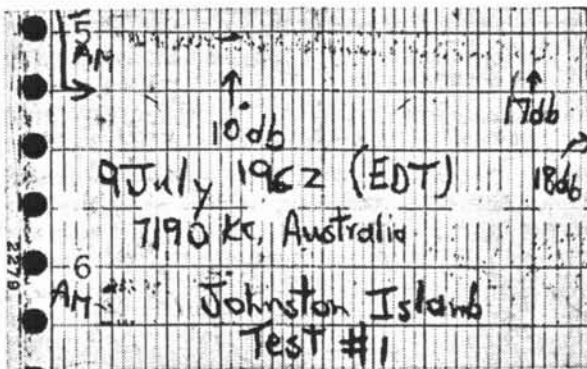 5
AM
10 db
17db
9 July 1962 (EDT)
18db
7190 Kc, Australia
2279
6
AM
Johnston Island
Test #1